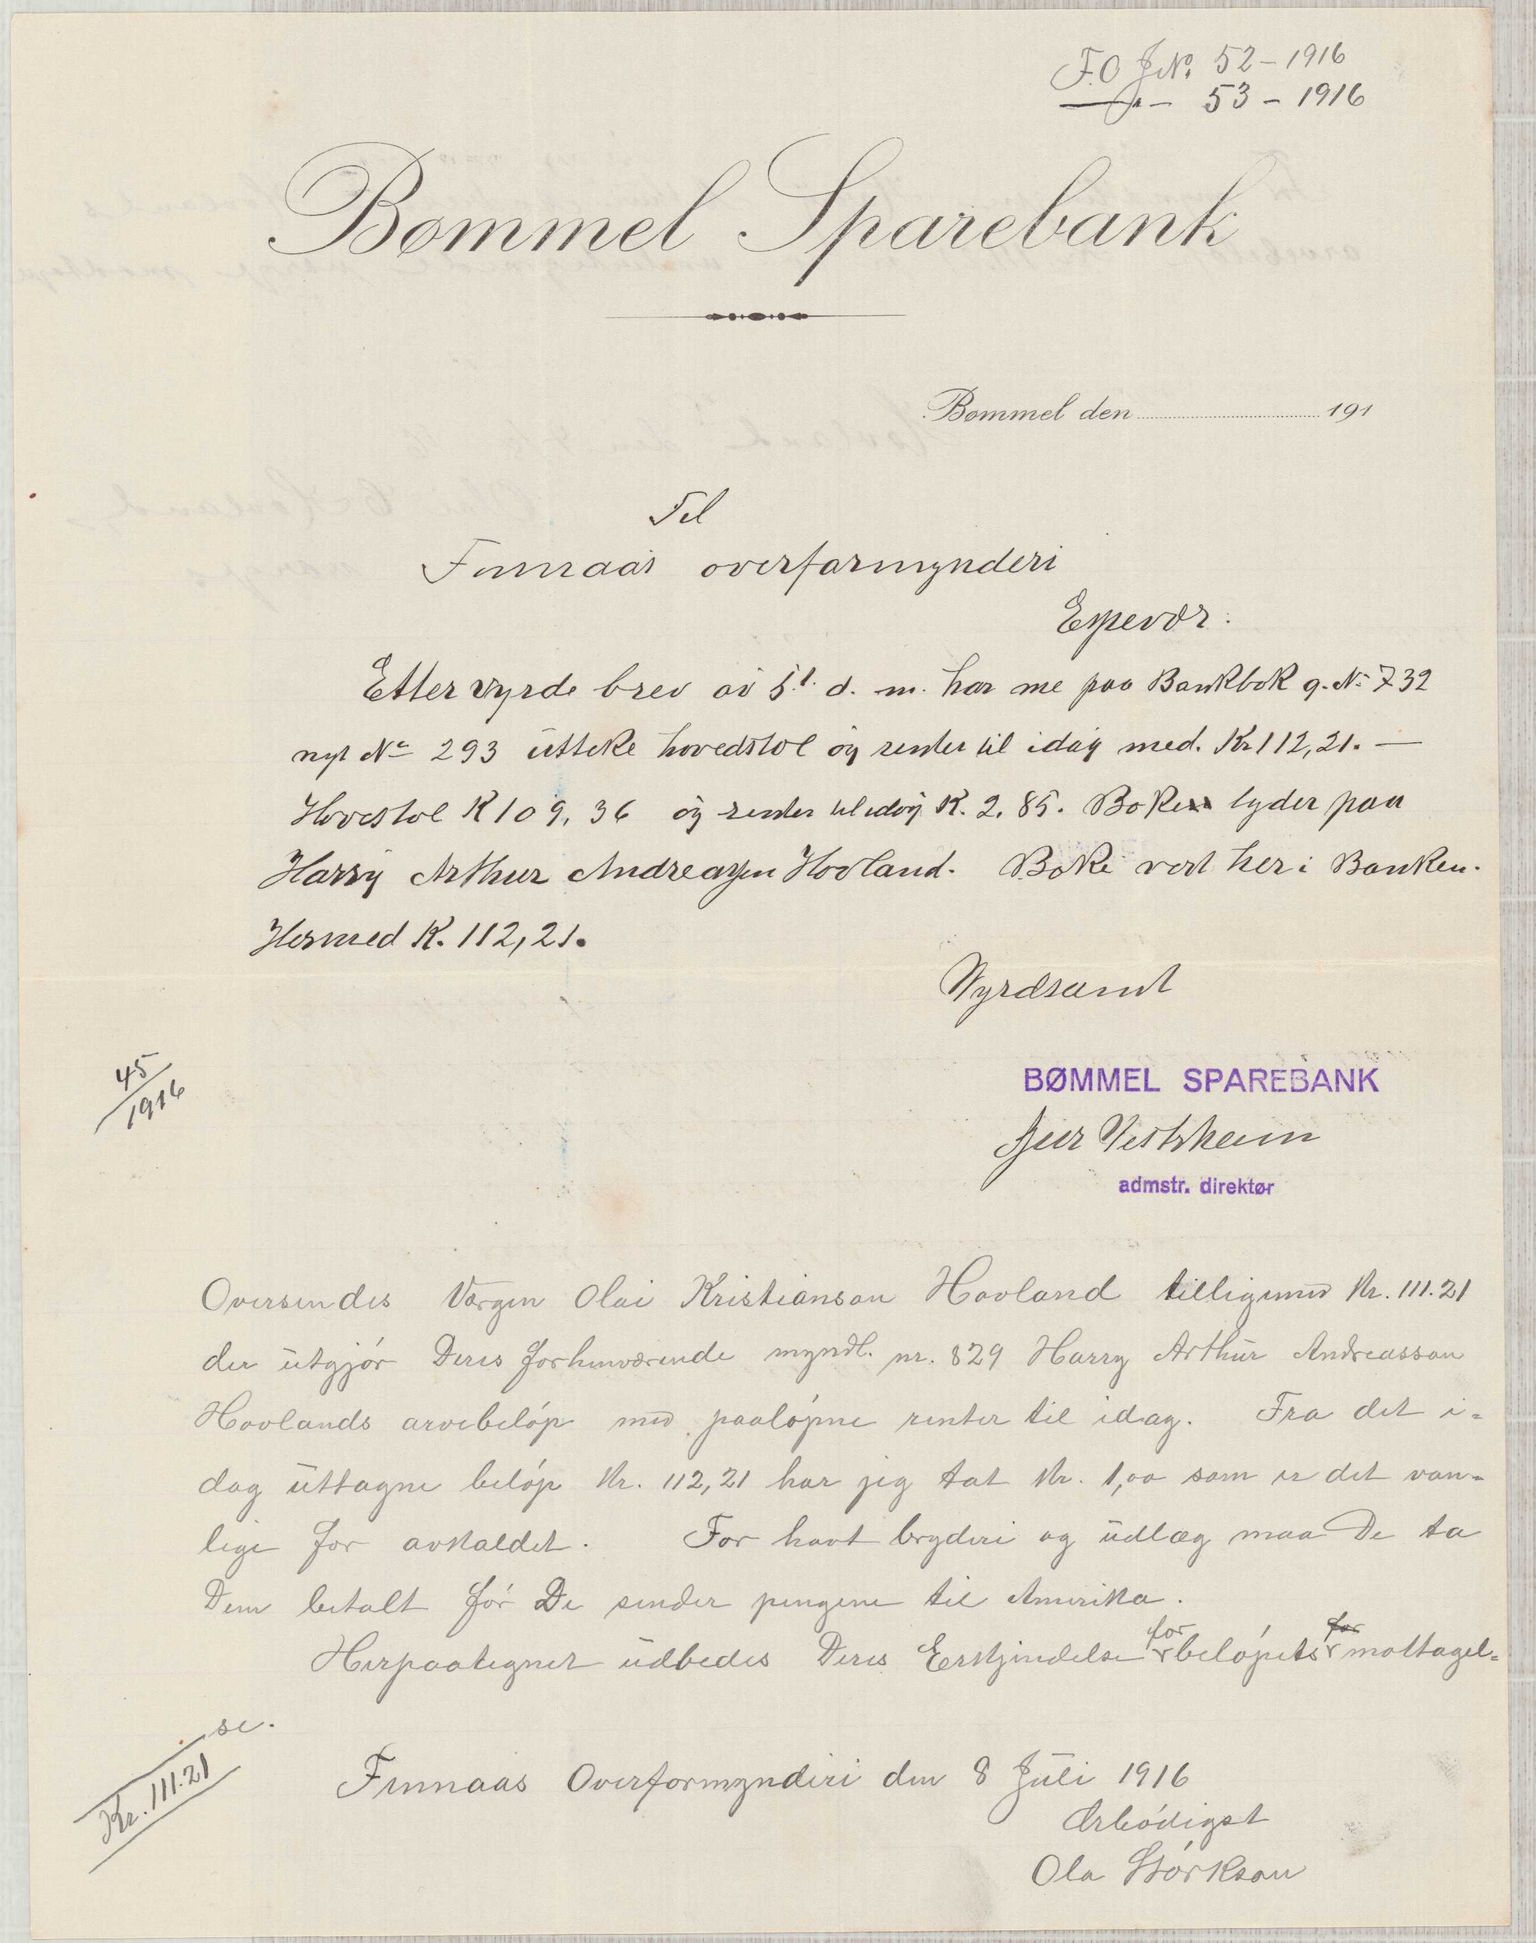 F.O J.No. 52 - 1916
— " — 53 - 1916
Bømmel Sparebank
Bømmel den 191
Til
Finnaas overformynderi
Espevær.
Etter vyrde brev av 5t. d. m. har me paa Bankbok g. No 732
nyt No 293 utteke hovedstol og renter til idag med. Kr 112,21. —
Hovestol K 109,36 og renter til idag K. 2,85. Boken lyder paa
Harry Arthur Andreassen Hovland. Boke vert her i Banken.
Hermed K. 112,21.
Vyrdsamt
BØMMEL SPAREBANK
Vestvheim
admstr. direktør
45/1916
Oversendes Værgen Olai Kristianson Hovland tilligemed Kr. 111.21
der utgjør Deres forhenværende myndl. nr. 829 Harry Arthur Andreasson
Hovlands arvebeløp med paaløpne renter til idag. Fra det i=
dag uttagne beløp Kr. 112,21 har jeg tat Kr. 1,00 som er det van=
lige for avholdet. For havt bryderi og udlæg maa De ta
Dem betalt før De sender pengene til Amerika.
Herpaategnet udbedes Deres Erkjendelse for beløpets for mottagel=
se.
Kr. 111.21
Finnaas Overformynderi den 8 Juli 1916
Ærbødigst
Ola Størkson